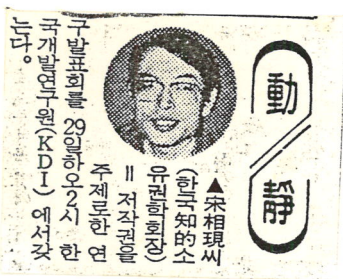 動
靜
▲宋相現씨
(한국知的소
유권학회장)
=저작권을
주제로한 연
구발표회를 29일하오2시 한
국개발연구원(KDI)에서갖
는다。